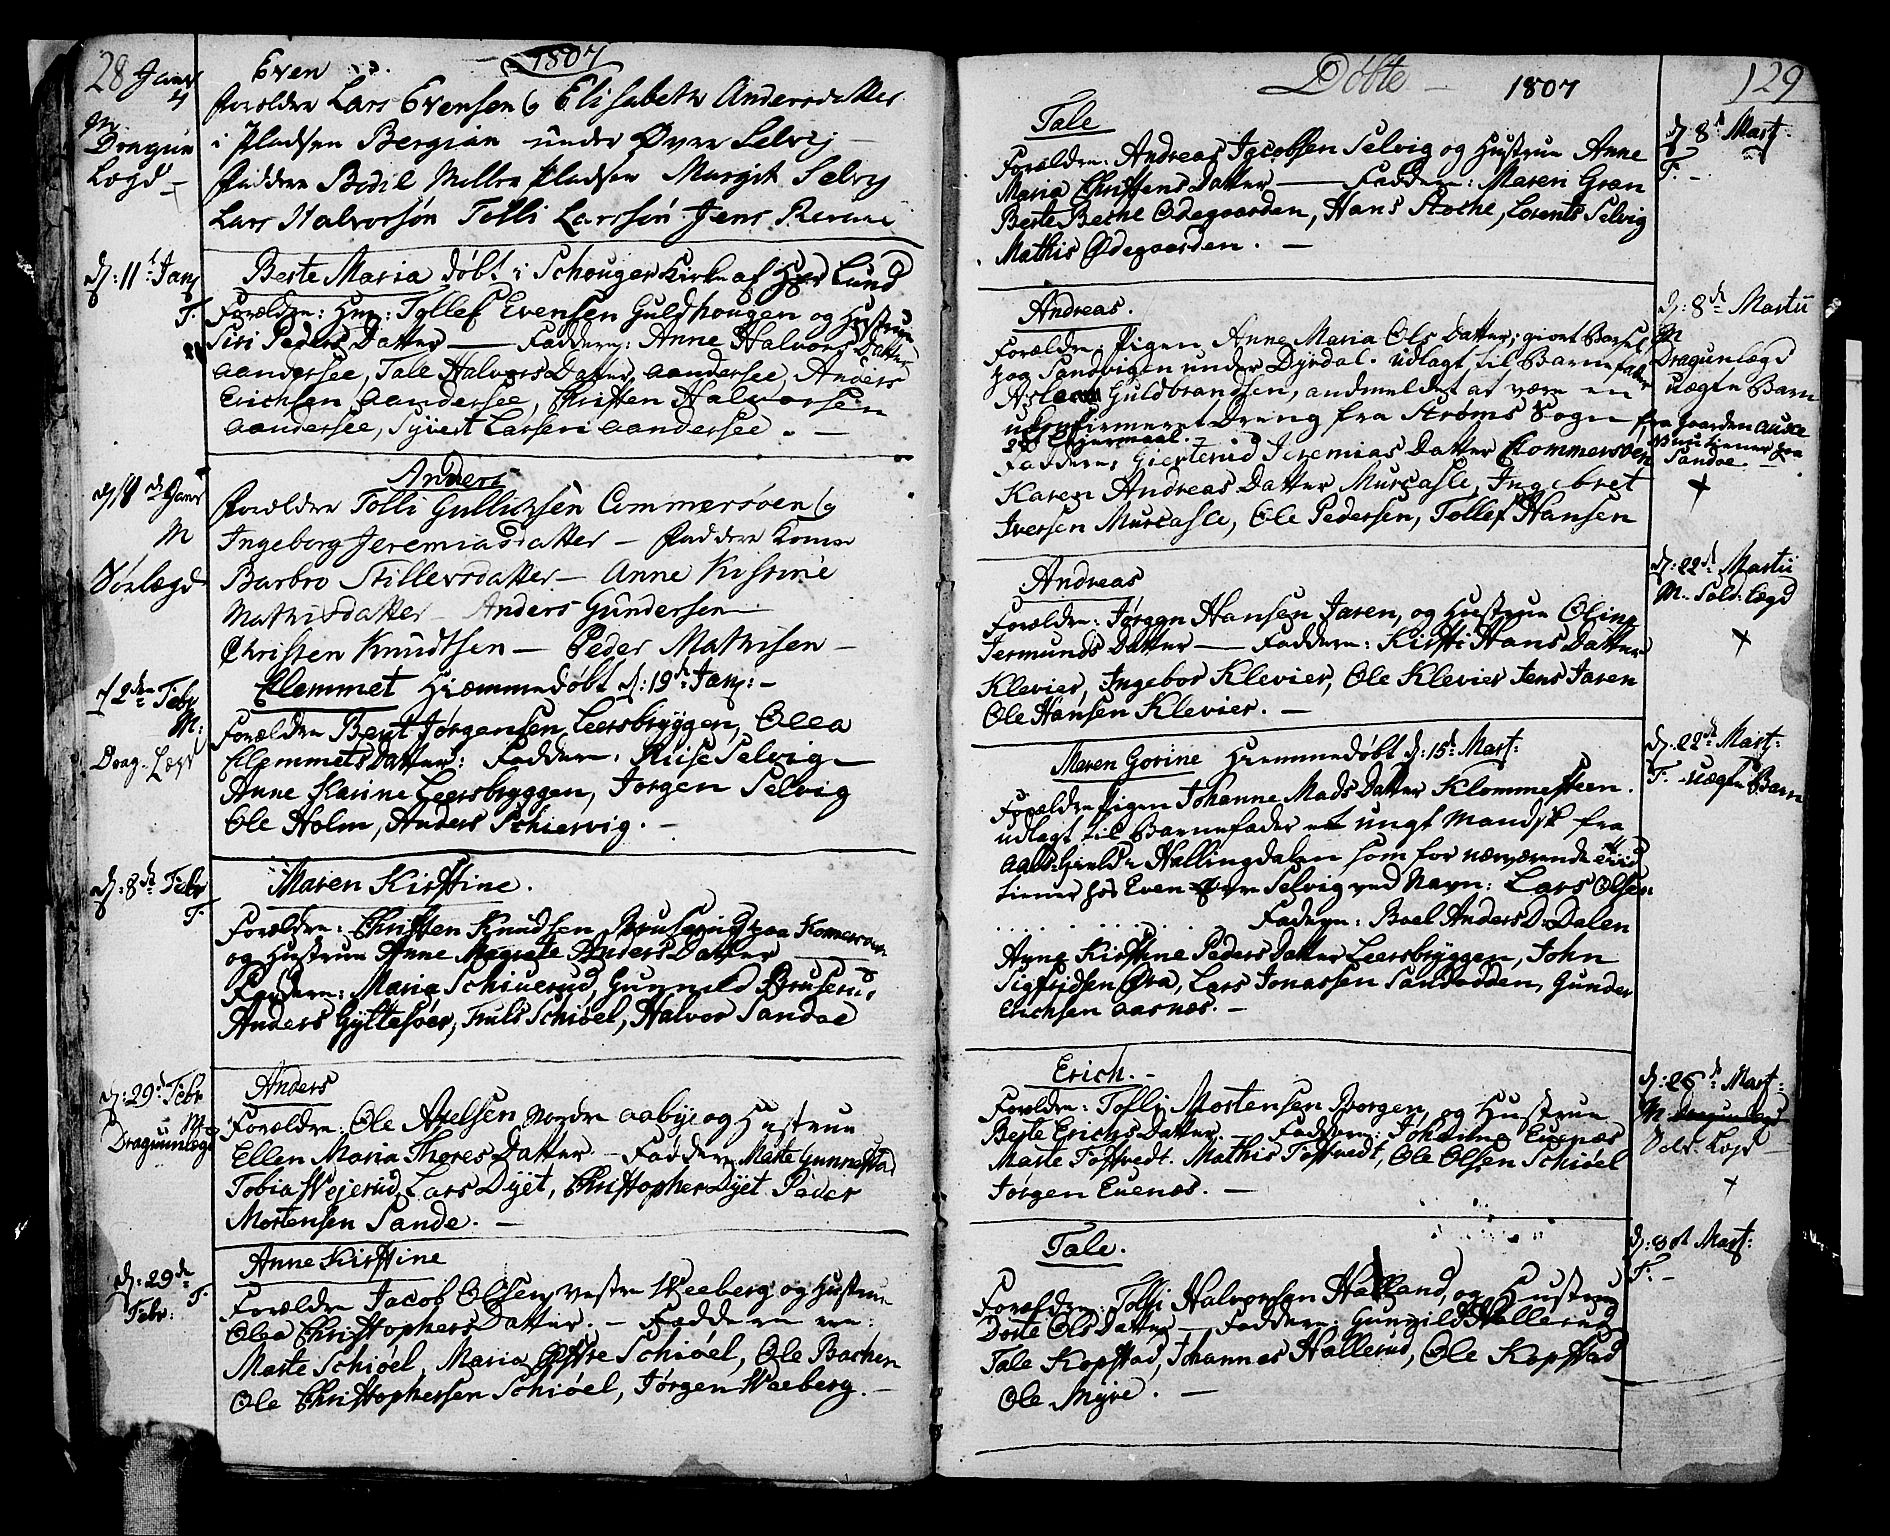 28 Janr 1807
4 Even
M Forældre Lars Evensen og Elisabeth Andersdatter
Dragun i Pladsen Bergian under Øvre Selvig —
Lægd — Faddere Bodil Pladsen Margit Selvig
Lars Halvorsøn Tolli Larssøn Jens
d: 11t Janr Berte Maria døbt i Schouger Kirke af Her Lund
T. Forældre: Hur: Tollef Evensen Guldhougen og Hustrue
Siri Peders Datter — Faddere: Anne Halvors Datter
Aandersee, Tale Halvors Datter Aandersee, Anders
Erichsen Aandersee, Christen Halvorsen
Aandersee, Syvert Larsen Aandersee. —
Anders
d 18 d Janr Forældre Tolli Gullichsen Commersøen og
M Ingeborg Jeremiasdatter — Faddere Kone
Søelægd Barbro Stillersdatter — Anne Kistine
Mathisdatter — Anders Gundersen
Christen Knudtsen — Peder Mathisen —
d 2den Febr Clemmet Hiemmedøbt d: 19d Janr: —
M: Forældre Bent Jørgensen Leersbryggen, Olea
Drag. Lægd Clemmets Datter: Faddere: Selvig —
Anne Karine Leersbryggen, Jørgen Selvig
Ole Holm, Anders Schiervig. —
d: 8de Febr Maren Kirstine.
T. Forældre: Christen Knudsen Bruserud paa Komersøen
og Hustrue Anne Magrete Anders Datter —
Faddere: Maria Schiuerud, Gunnild Bruserud
Anders Gyltesøer, Truls Schiøel, Halvor Sandoe
d: 29d Febr Anders
M. Forældre: Ole Axelsen Nordre Aabye og Hustrue
Dragunlægd Ellen Maria Thores Datter — Faddere Marte Gunnestad
Tobia Wejerud, Lars Dyet, Christopher Dyet Peder
Mortensen Sande. —
Anne Kirstine
d: 29de Febr: T. Forældre Jacob Olsen vestre Weeberg og Hustrue
Olea Christophers Datter. — Faddere ere:
Marte Schiøel, Maria Schiøel, Ole Bachen
Ole Christophersen Schiøel, Jørgen Weeberg. —
Døbte — 1807 129
Tale d: 8d Mart:
Forældre: Andreas Jacobsen Selvig og Hustrue Anne T. —
Maria Christens Datter — Faddere: Maren Gran
Berte Bethe Ødegaarden, Hans Stoche, Lorents Selvig
Mathis Ødegaarden. —
Andreas. d: 8d Martii
Forældre: Pigen Anne Maria Ols Datter, giort Barsel M
paa Sandvigen under Dyrdal. udlagt til Barnefader Dragunlægd
Aslach Guldbrandsen, anmeldet at være en uægte Barn
ukonfirmeret Dreng fra Strøms Sogn fra Gaarden
2det Leiermaal. tiener paa
Faddere: Giertrud Jeremias Datter Commersøen Sandoe —
Karen Andreas Datter Murcasle, Ingebret +
Iversen Murcasle, Ole Pedersen, Tollef Hansen
Andreas d: 22d Martii
Forældre: Jørgen Hansen Jaren, og Hustrue Oline M. Sold. Lægd
Jermunds Datter — Faddere: Kirsti Hans Datter +
Klevier, Ingebor Klevier, Ole Klevier Jens Jaren
Ole Hansen Klevier. —
Maren Gorine Hiemmedøbt d: 15d Mart: d: 22d Mart:
Forældre Pigen Johanne Mads Datter Klommesteen. T. uægte Barn
udlagt til Barnefader et ungt Mandsk fra
Aals Gield i Hallingdalen som for nærværende tid
tiener hos Even Øvre Selvig ved Navn: Lars Olsen
Faddere: Boel Anders D. Dalen
Anne Kirstine Peders Datter Leersbryggen, John
Sigfridsen Øra, Lars Jonassen Sandodden, Gunder
Erichsen Aasnes. —
Erich. — d: 26d Mart:
Forældre: Tolli Mortensen Bergen, og Hustrue M. Dragunlægd
Berte Erichs Datter. — Faddere: Johanne Euenæs Sold. Lægd —
Marte Toftvedt. Mathis Toftvedt, Ole Olsen Schiøel
Jørgen Euenæs. — +
Tale. d: 8d Mart:
Forældre: Tolli Halvorsen Halland, og Hustrue T. —
Dorte Ols Datter — Faddere: Gunild Hallerud
Tale Kopstad, Johannes Hallerud, Ole Kopstad
Ole Myre. —